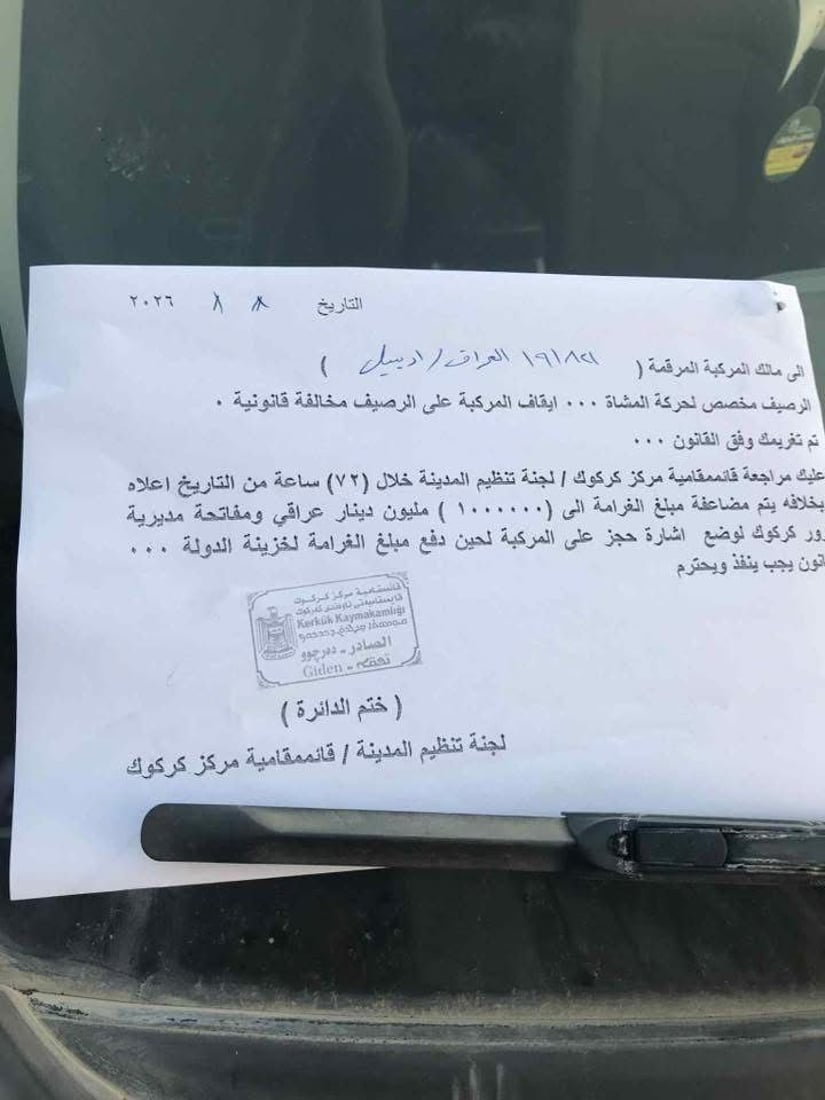 التاريخ ٨ / ٨ ٢٠٢٦
الى مالك المركبة المرقمة ( العراق / اربيل )
الرصيف مخصص لحركة المشاة ٠٠٠ ايقاف المركبة على الرصيف مخالفة قانونية ٠
تم تغريمك وفق القانون ٠٠٠
عليك مراجعة قائممقامية مركز كركوك / لجنة تنظيم المدينة خلال (٧٢) ساعة من التاريخ اعلاه
بخلافه يتم مضاعفة مبلغ الغرامة الى (١٠٠٠٠٠٠ ) مليون دينار عراقي ومفاتحة مديرية
رور كركوك لوضع اشارة حجز على المركبة لحين دفع مبلغ الغرامة لخزينة الدولة ٠٠٠
انون يجب ينفذ ويحترم
قائممقامية مركز كركوك
Kerkük Kaymakamlığı
الصادر - دەرچوو
Giden -
( ختم الدائرة )
لجنة تنظيم المدينة / قائممقامية مركز كركوك